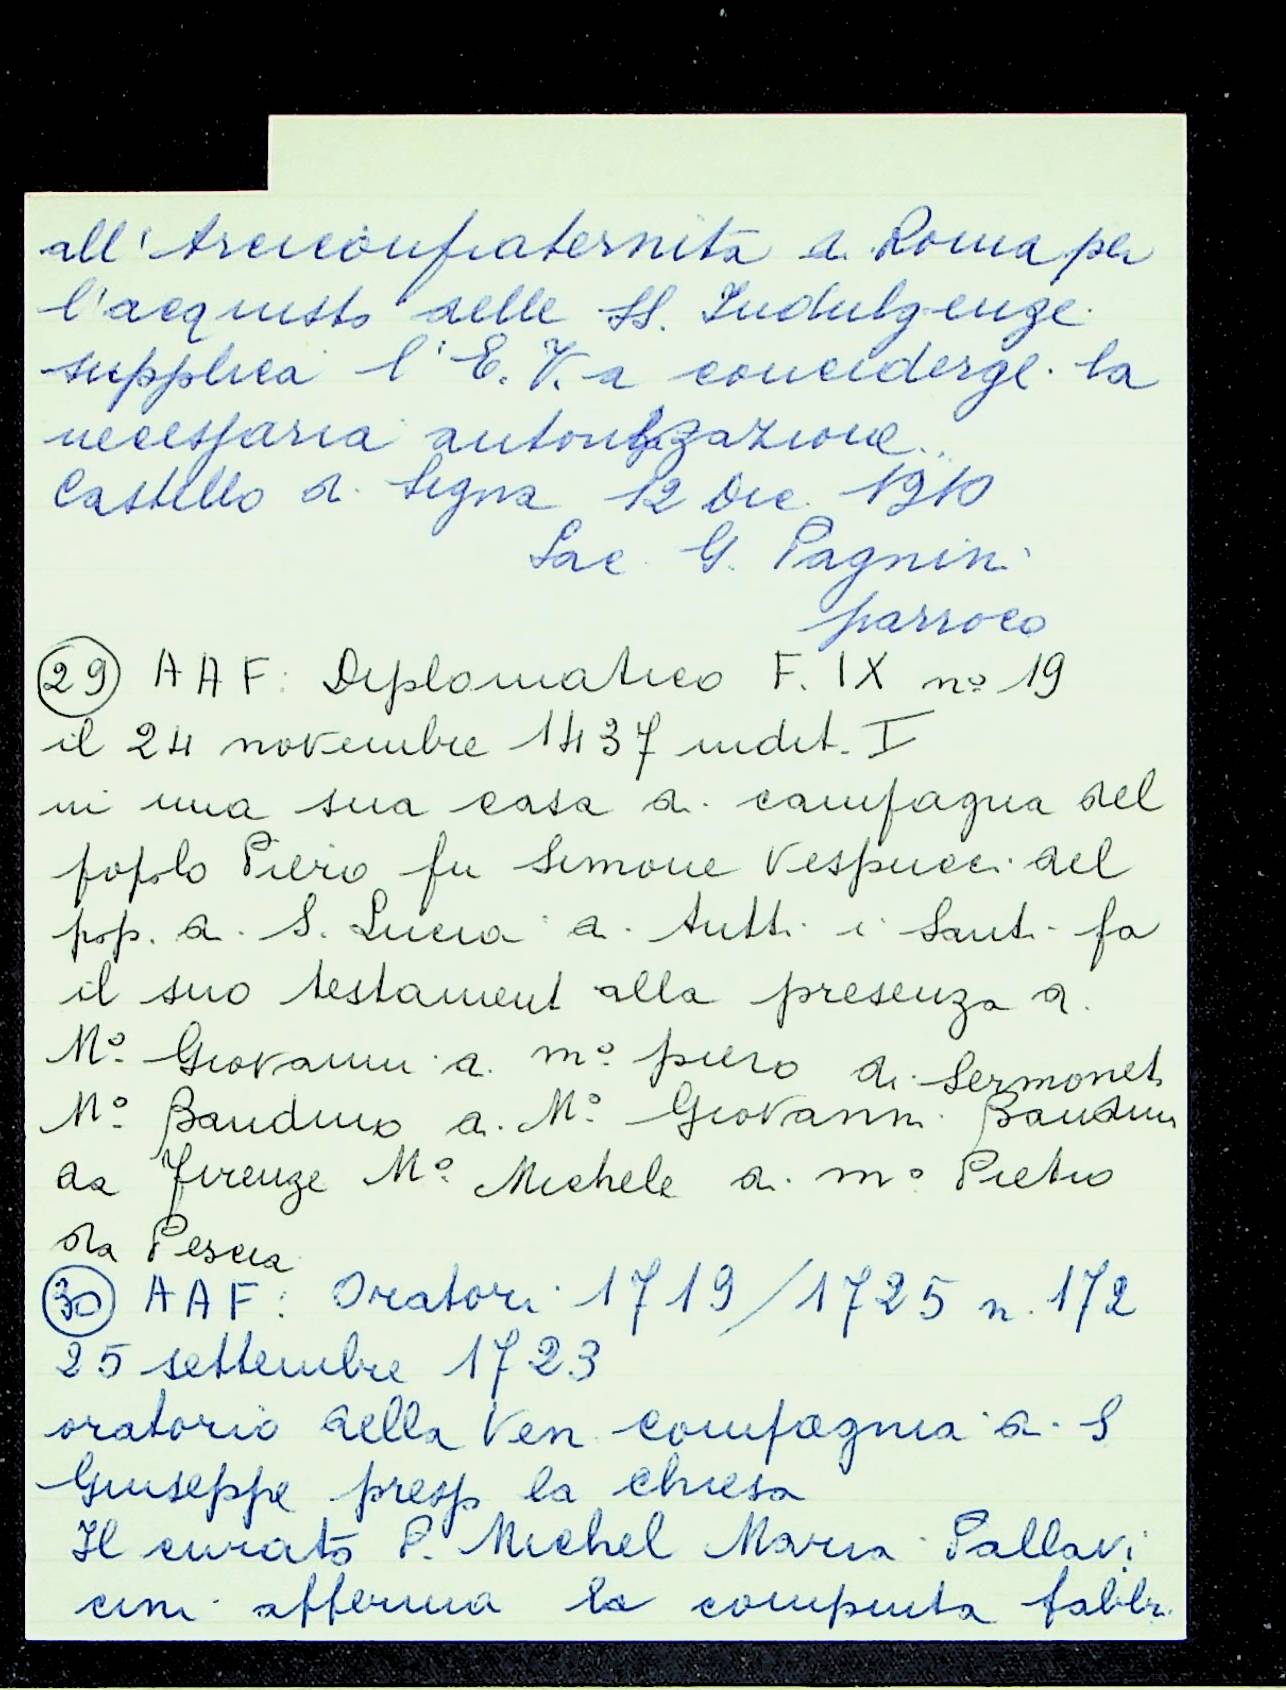 all'Arciconfraternità di Roma per
l'acquisto delle SS. Indulgenze
supplica l'E. V. a concederge la
necessaria autorizzazione.
Castello di Signa 12 Dic. 1910
Sac. G. Pagnini
parroco
29 AAF: Diplomatico F. IX nº 19
il 24 novembre 1437 indit. I
in una sua casa di campagna del
popolo Piero fu Simone Vespucci del
pop. di S. Lucia di tutti i Santi fa
il suo testament alla presenza di
Mº Giovanni di mº piero di Sermoneti
Mº Bandino di Mº Giovanni Bandini
da Firenze Mº Michele di mº Pietro
da Pescia
30 AAF: Oratori 1719/1725 n. 172
25 settembre 1723
oratorio della Ven compagnia di S
Giuseppe presso la chiesa
Il curato P. Michel Maria Pallavi
cini afferma la compiuta fabbr.